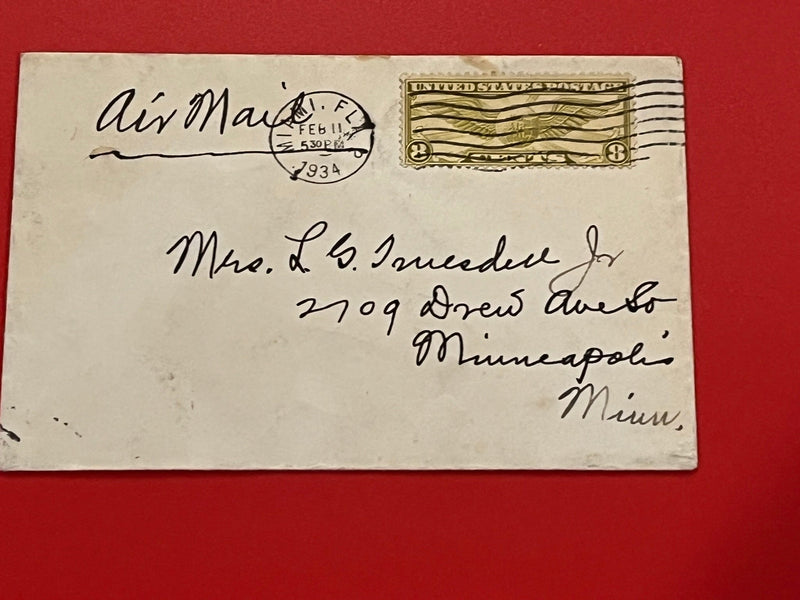 Air Mail
MIAMI, FLA.
FEB 11
5 30 PM
1934
UNITED STATES POSTAGE
8 CENTS 8
Mrs. L. G. Truesdell Jr
2709 Drew Ave So
Minneapolis
Minn.